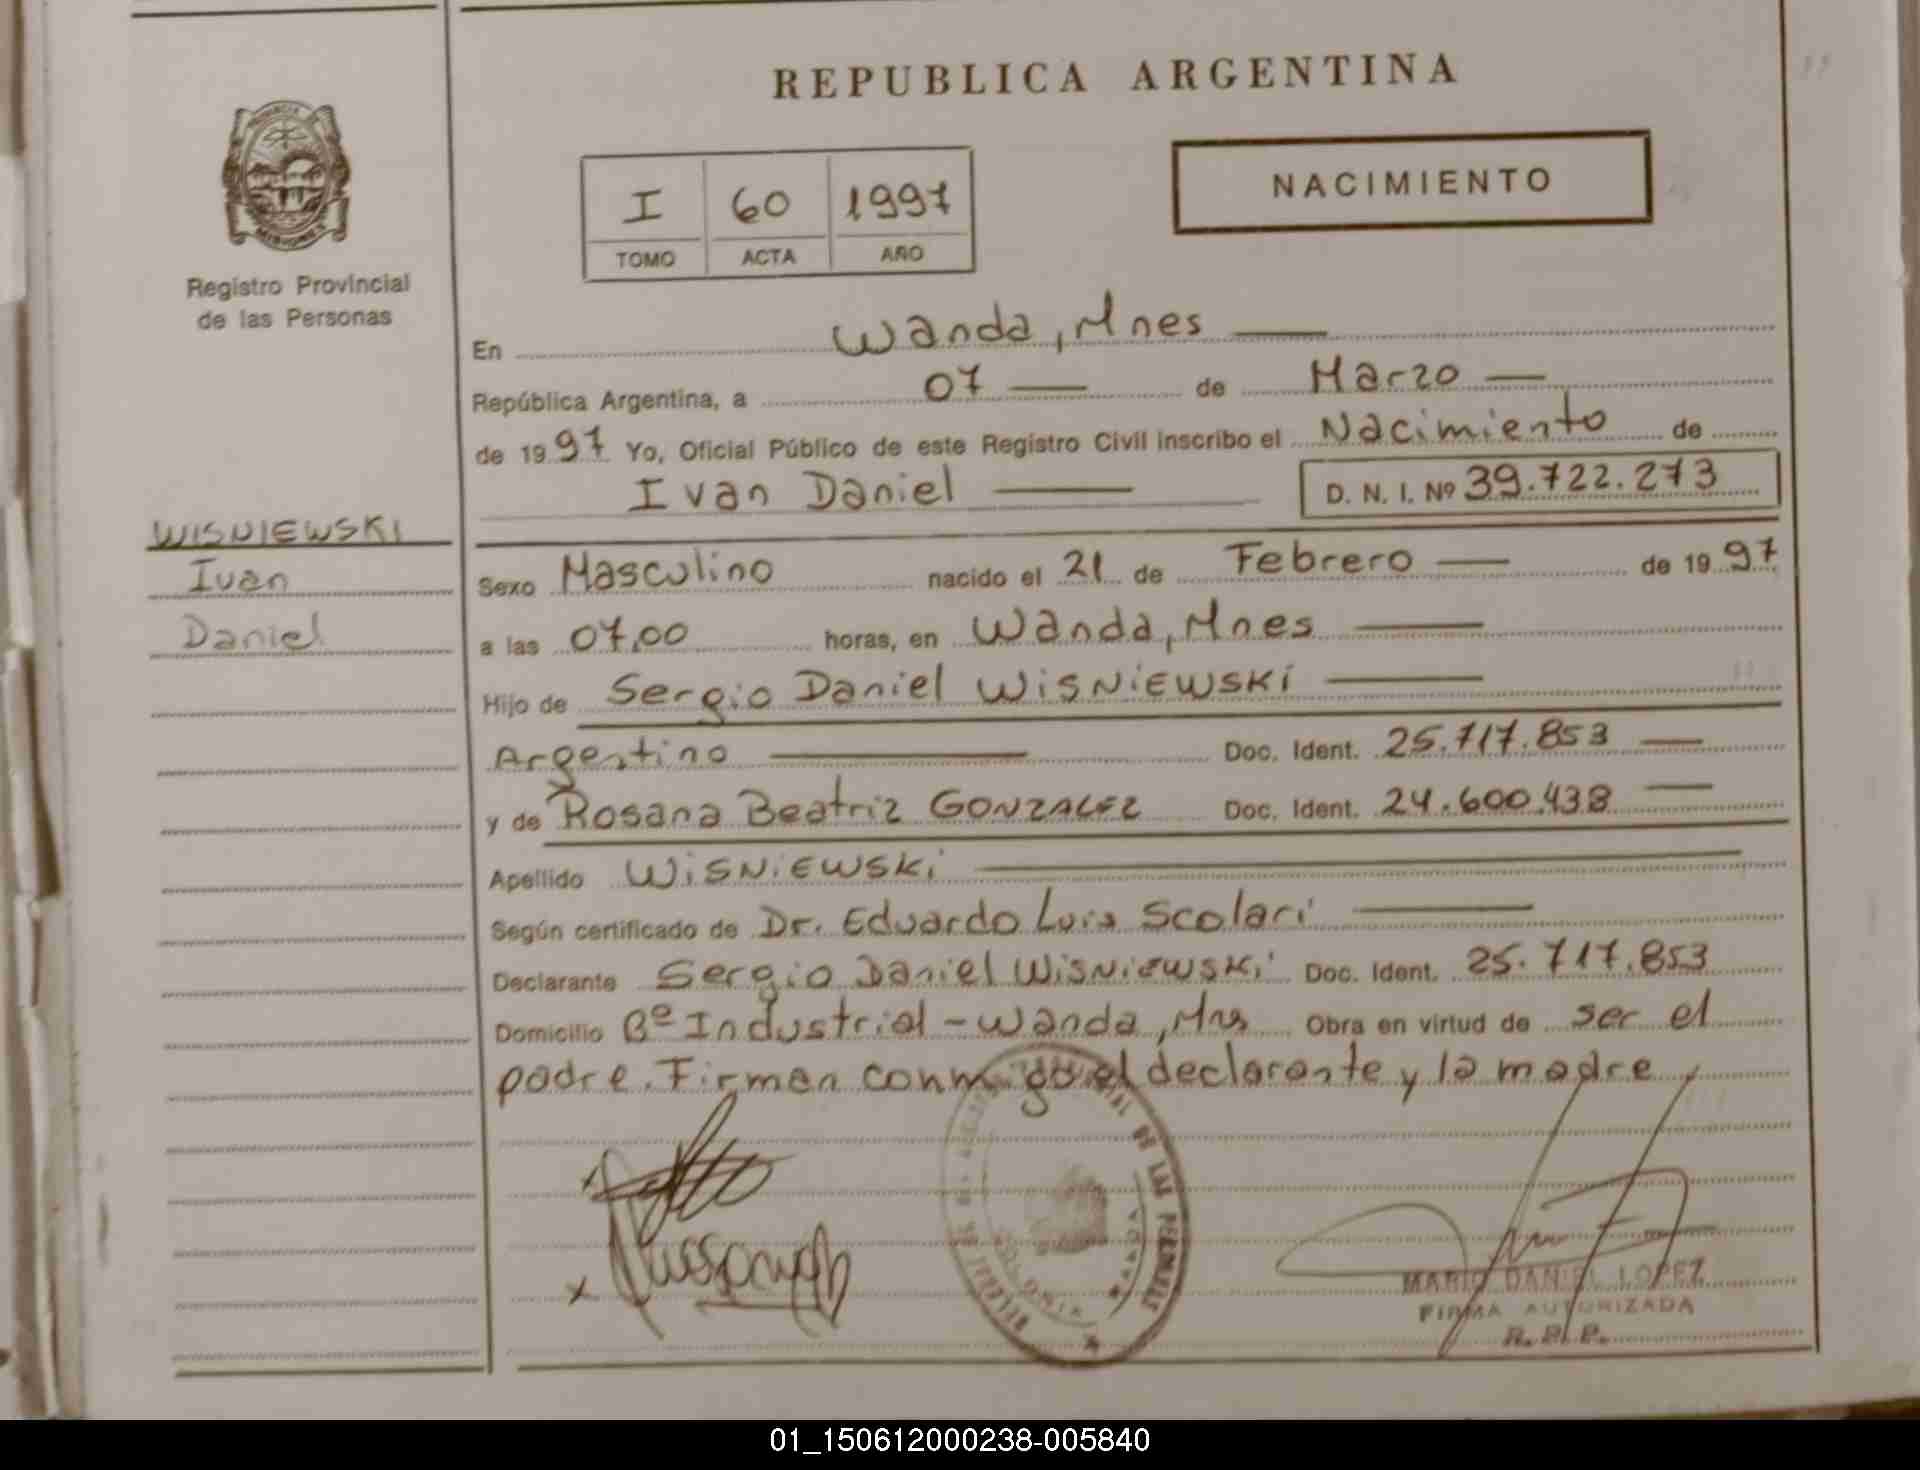 REPUBLICA ARGENTINA
PROVINCIA DE
MISIONES
Registro Provincial
de las Personas
I 60 1997
TOMO ACTA AÑO
NACIMIENTO
En Wanda, Mnes
República Argentina, a 07 de Marzo
de 1997 Yo, Oficial Público de este Registro Civil inscribo el Nacimiento de
Ivan Daniel D. N. I. Nº 39.722.273
WISNIEWSKI
Ivan
Daniel
Sexo Masculino nacido el 21 de Febrero de 1997
a las 07,00 horas, en Wanda, Mnes
Hijo de Sergio Daniel WISNIEWSKI
Argentino Doc. Ident. 25.717.853
y de Rosana Beatriz GONZALEZ Doc. Ident. 24.600.438
Apellido WISNIEWSKI
Según certificado de Dr. Eduardo Luis Scolari
Declarante Sergio Daniel WISNIEWSKI Doc. Ident. 25.717.853
Domicilio Bº Industrial - Wanda, Mns Obra en virtud de ser el
padre. Firman conmigo el declarante y la madre
DE LAS PERSONAS
WANDA
MARIO DANIEL LOPEZ
FIRMA AUTORIZADA
R.P.P.
01_150612000238-005840